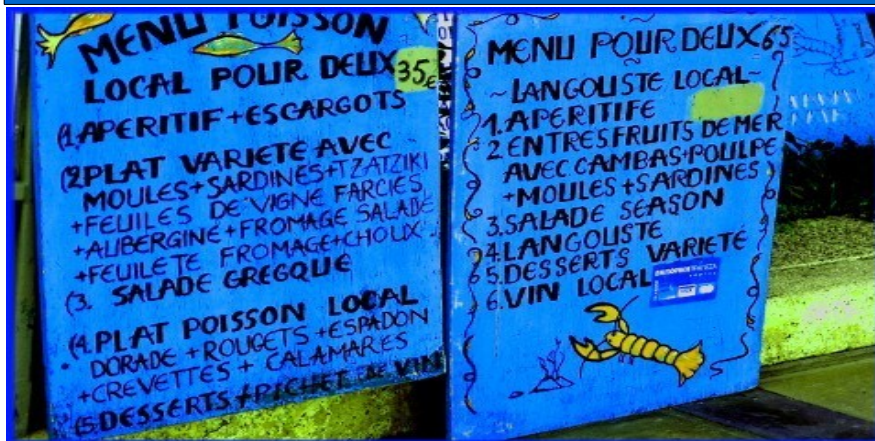 MENU POISSON
LOCAL POUR DEUX 35€
(1.APERITIF+ESCARGOTS
(2.PLAT VARIETE AVEC
MOULES+SARDINES+TZATZIKI
+FEUILES DE VIGNE FARCIES
+AUBERGINE+FROMAGE SALADE
+FEUILETE FROMAGE+CHOUX
(3. SALADE GREGQUE
(4.PLAT POISSON LOCAL
DORADE+ROUGETS+ESPADON
+CREVETTES+CALAMARES
(5.DESSERTS+PICHET DE VIN
MENU POUR DEUX 65
~LANGOUSTE LOCAL~
1.APERITIFE
2.ENTRES FRUITS DE MER
AVEC CAMBAS+POULPE
+MOULES+SARDINES
3.SALADE SEASON
4.LANGOUSTE
5.DESSERTS VARIETE
6.VIN LOCAL